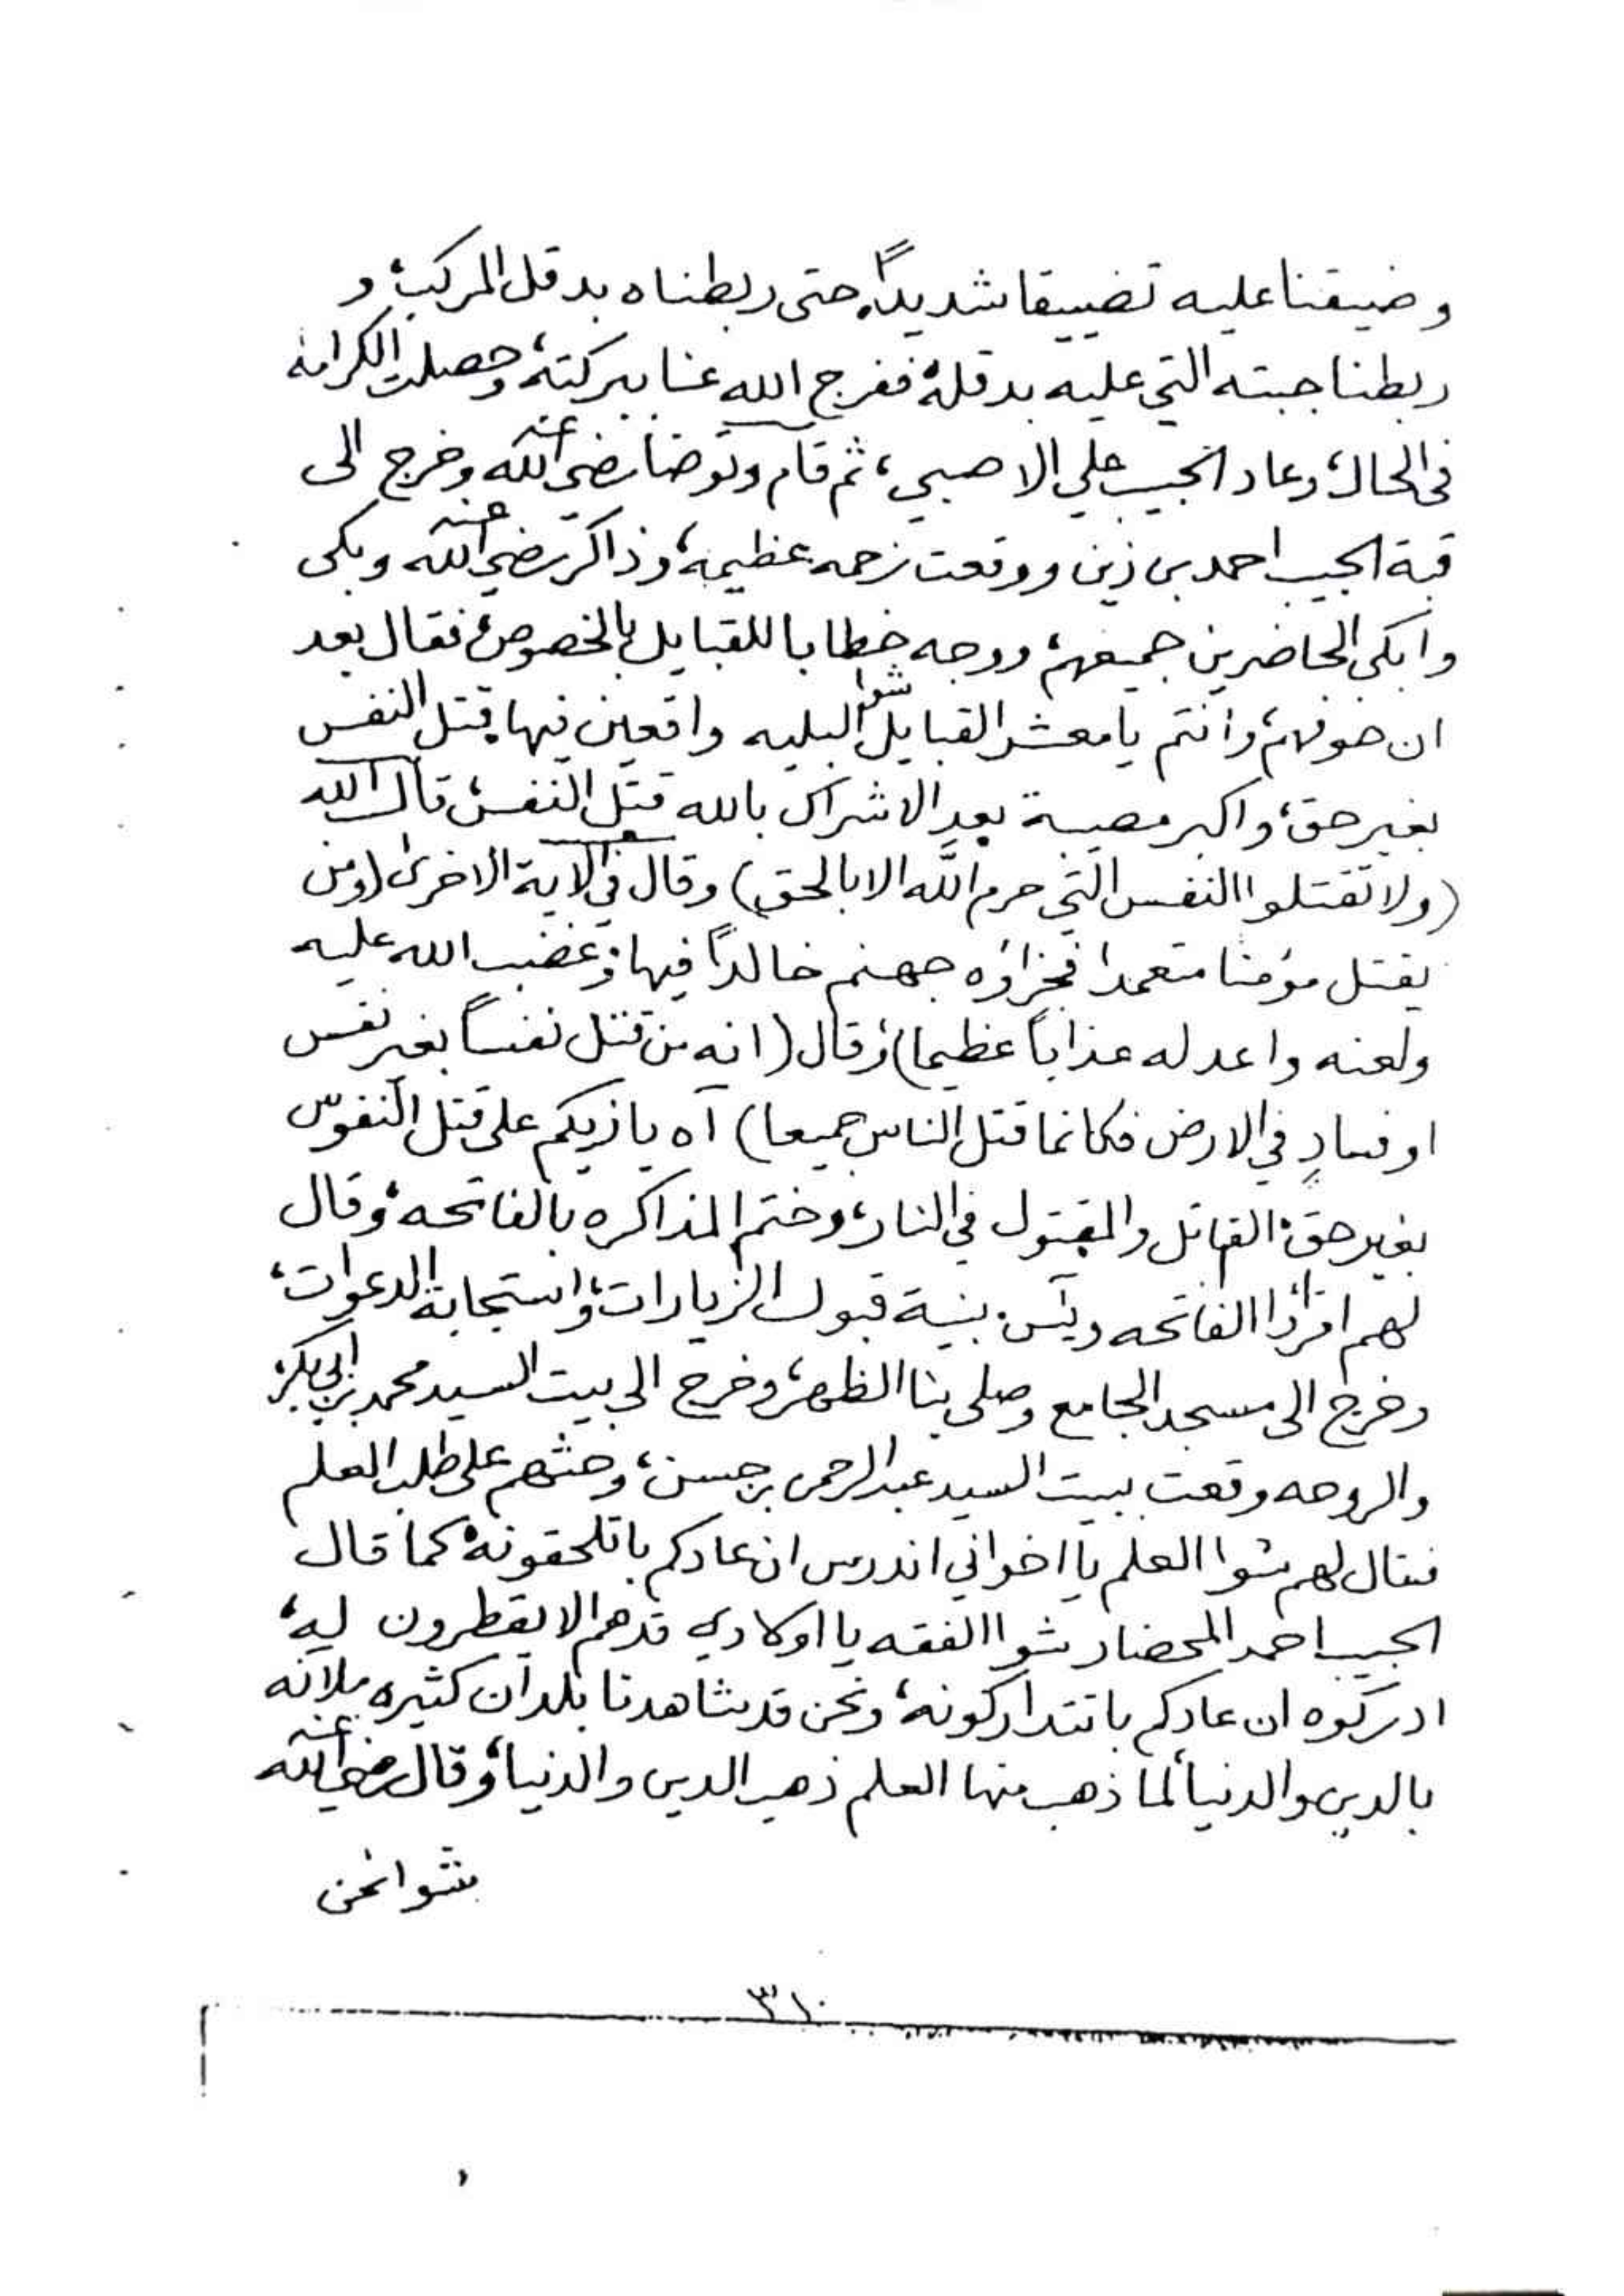 وضيقنا عليه تضييقا شديداً، حتى ربطناه بدقل المركب، و
ربطنا جبته التي عليه بدقله، ففرج الله عنا ببركته، وحصلت الكرامه
في الحال، وعاد الحبيب علي الاصبحي، ثم قام وتوضأ رضي الله عنه وخرج الى
قبة الحبيب احمد بن زين ووقعت زحمه عظيمه، وذاكر رضي الله عنه وبكى
وابكى الحاضرين جميعهم، ووجه خطابا للقبايل بالخصوص، فقال بعد
ان خوفهم، وانتم يا معشر القبايل شوا البليه واقعين فيها، قتل النفس
بغير حق، واكبر مصيبة بعد الاشراك بالله قتل النفس، قال الله
(ولا تقتلوا النفس التي حرم الله الا بالحق) وقال في الآية الاخرى (ومن
يقتل مؤمنا متعمدا فجزاؤه جهنم خالداً فيها وغضب الله عليه
ولعنه واعد له عذاباً عظيما) وقال (انه من قتل نفساً بغير نفس
او فسادٍ في الارض فكانما قتل الناس جميعا) آه يا زيكم على قتل النفوس
بغير حق، القاتل والمقتول في النار، وختم المذاكره بالفاتحه، وقال
لهم اقرؤا الفاتحه ويٓس بنية قبول الزيارات، واستجابة الدعوات،
وخرج الى مسجد الجامع وصلى بنا الظهر، وخرج الى بيت السيد محمد بن ابي بكر،
والروحه وقعت ببيت السيد عبدالرحمن بن حسن، وحثهم على طلب العلم
فقال لهم شوا العلم يا اخواني اندرس ان عادكم با تلحقونه، كما قال
الحبيب احمد المحضار شوا الفقه يا اولادي قدهم الا يقطرون ليه،
ادركوه ان عادكم با تتداركونه، ونحن قد شاهدنا بلدان كثيره ملانه
بالدين والدنيا، لما ذهب منها العلم ذهب الدين والدنيا، وقال رضي الله عنه
شوا نحن
٣١٠